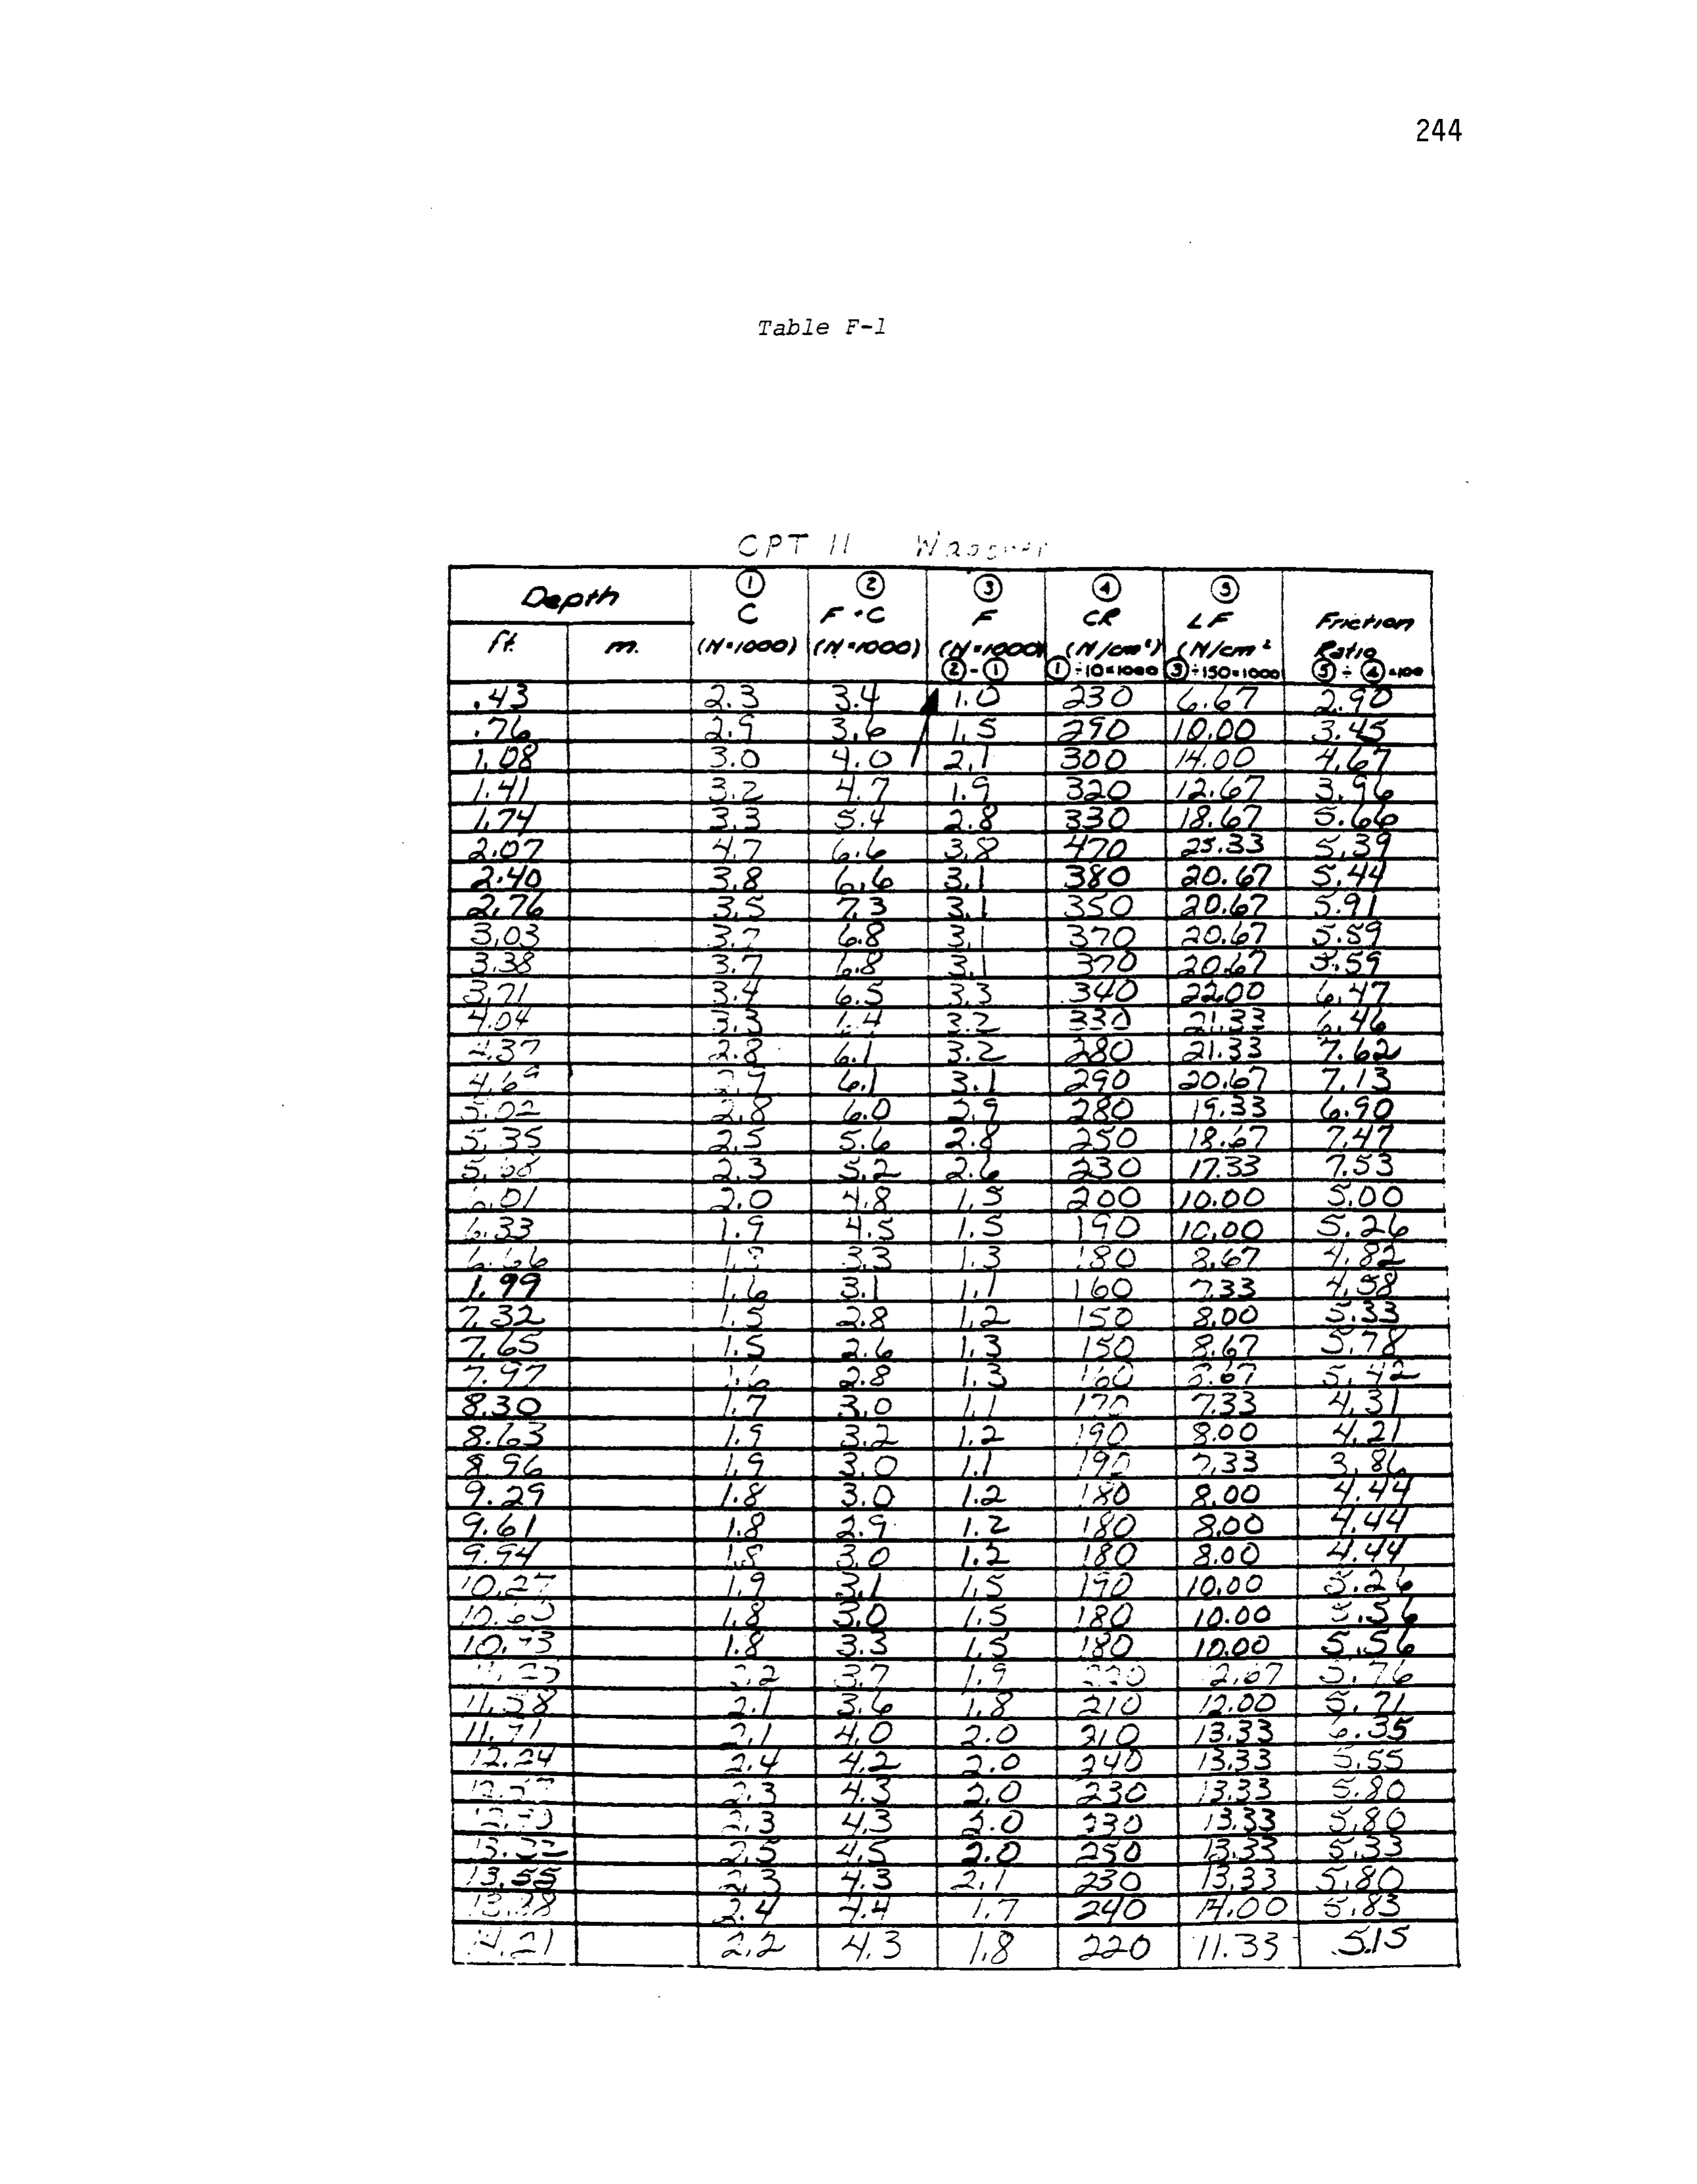 244
Table F-1
CPT 11
Depth ① C ② F+C ③ F ④ CR ⑤ LF Friction
ft. m. (N×1000) (N×1000) (N×1000) (N/cm²) (N/cm² Ratio
②-① ①÷10×1000 ③÷150×1000 ⑤÷④×100
.43 2.3 3.4 1.0 230 6.67 2.90
.76 2.9 3.6 1.5 290 10.00 3.45
1.08 3.0 4.0 2.1 300 14.00 4.67
1.41 3.2 4.7 1.9 320 12.67 3.96
1.74 3.3 5.4 2.8 330 18.67 5.66
2.07 4.7 6.6 3.8 470 25.33 5.39
2.40 3.8 6.6 3.1 380 20.67 5.44
2.76 3.5 7.3 3.1 350 20.67 5.91
3.03 3.7 6.8 3.1 370 20.67 5.59
3.38 3.7 6.8 3.1 370 20.67 5.59
3.71 3.4 6.5 3.3 340 22.00 6.47
4.04 3.3 6.4 3.2 330 21.33 6.46
4.37 2.8 6.1 3.2 280 21.33 7.62
4.69 2.9 6.1 3.1 290 20.67 7.13
5.02 2.8 6.0 2.9 280 19.33 6.90
5.35 2.5 5.6 2.8 250 18.67 7.47
5.68 2.3 5.2 2.6 230 17.33 7.53
6.01 2.0 4.8 1.5 200 10.00 5.00
6.33 1.9 4.5 1.5 190 10.00 5.26
6.66 1.8 3.3 1.3 180 8.67 4.82
1.99 1.6 3.1 1.1 160 7.33 4.58
7.32 1.5 2.8 1.2 150 8.00 5.33
7.65 1.5 2.6 1.3 150 8.67 5.78
7.97 1.6 2.8 1.3 160 8.67 5.42
8.30 1.7 3.0 1.1 170 7.33 4.31
8.63 1.9 3.2 1.2 190 8.00 4.21
8.96 1.9 3.0 1.1 190 7.33 3.86
9.29 1.8 3.0 1.2 180 8.00 4.44
9.61 1.8 2.9 1.2 180 8.00 4.44
9.94 1.8 3.0 1.2 180 8.00 4.44
10.27 1.9 3.1 1.5 190 10.00 5.26
1.8 3.0 1.5 180 10.00 5.56
10.93 1.8 3.3 1.5 180 10.00 5.56
2.2 3.7 1.9 220 12.67 5.76
11.58 2.1 3.6 1.8 210 12.00 5.71
11.91 2.1 4.0 2.0 210 13.33 6.35
12.24 2.4 4.2 2.0 240 13.33 5.55
2.3 4.3 2.0 230 13.33 5.80
2.3 4.3 2.0 230 13.33 5.80
13.22 2.5 4.5 2.0 250 13.33 5.33
13.55 2.3 4.3 2.1 230 13.33 5.80
13.88 2.4 4.4 1.7 240 14.00 5.83
14.21 2.2 4.3 1.8 220 11.33 5.15